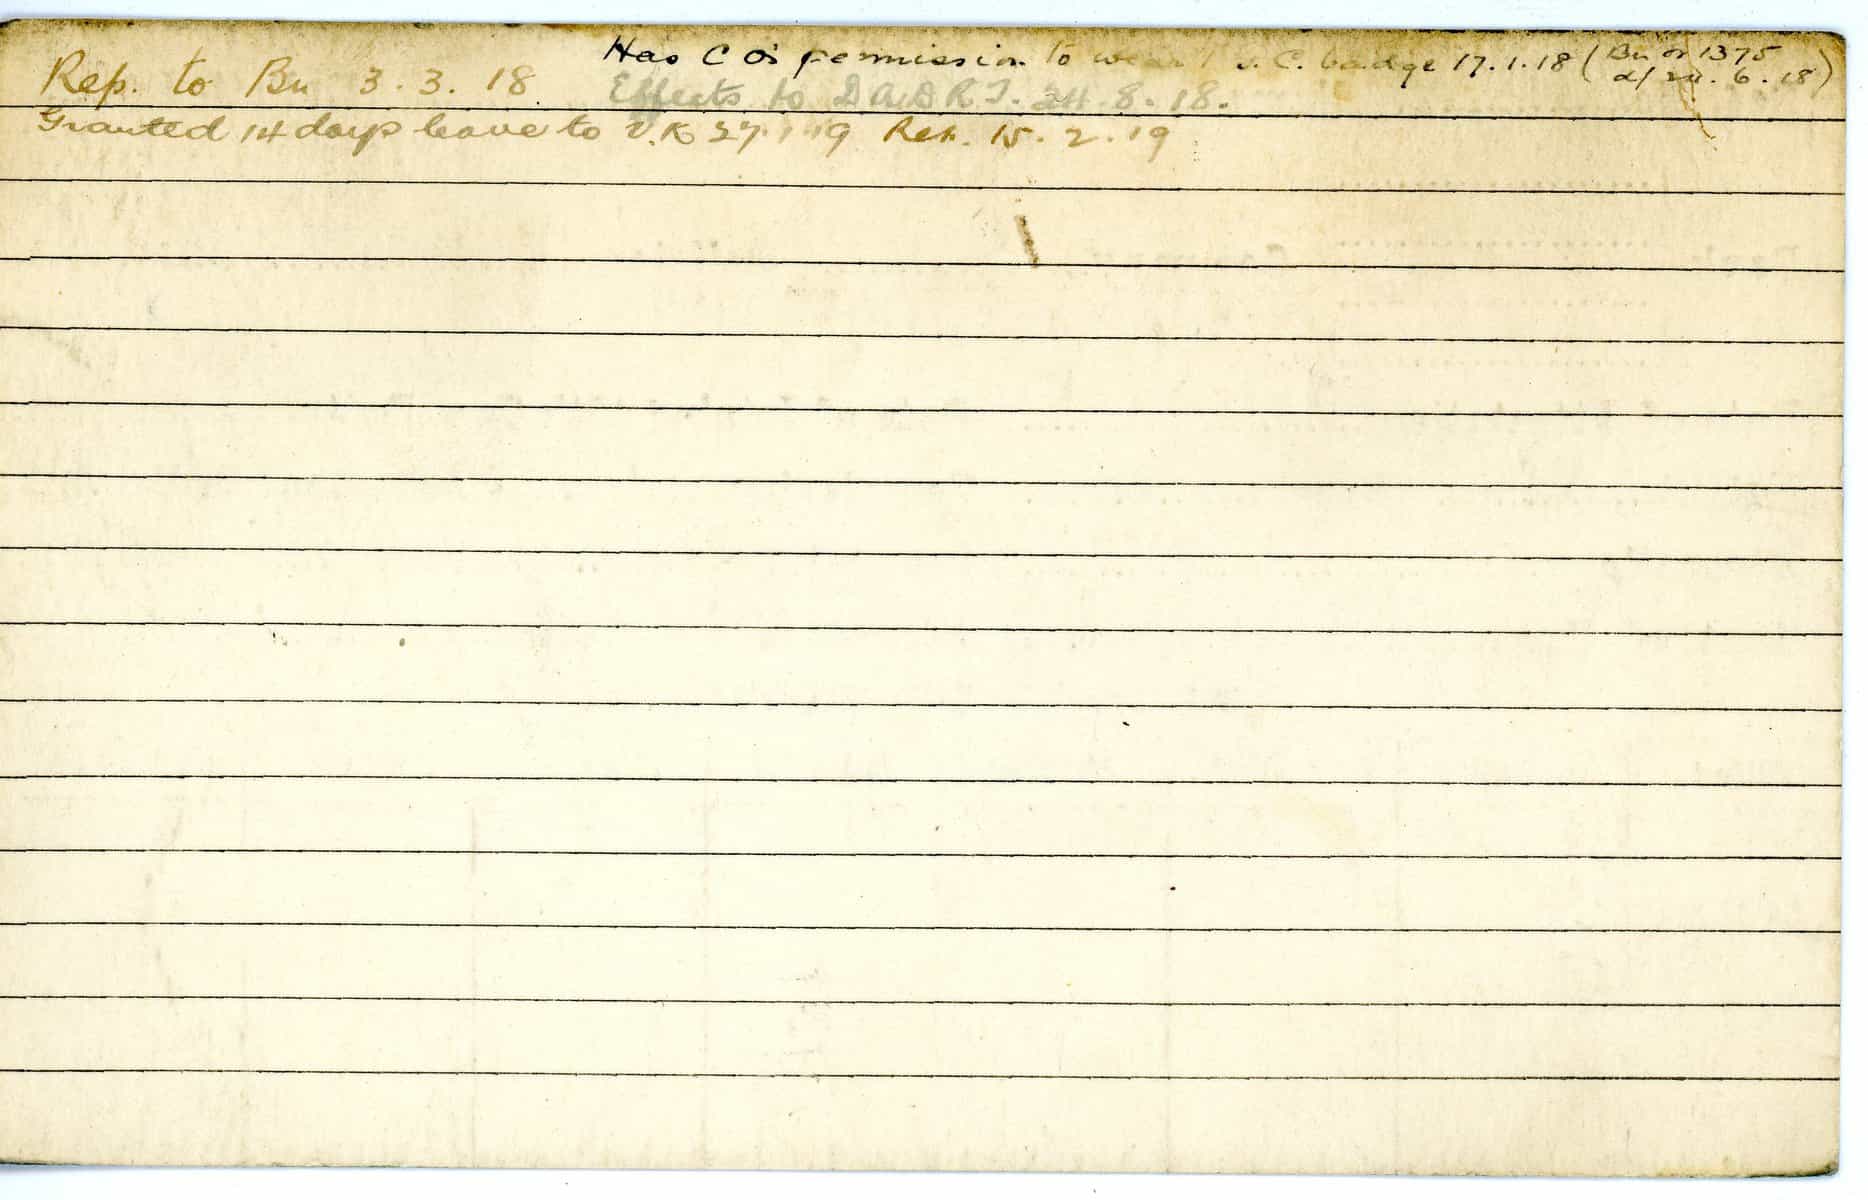 Has C O's permission to wear 1 G. C. badge 17.1.18 (Bn or 1375
d/ 24. 6. 18)
Rep. to Bn 3. 3. 18
Effects to D A D R T. 24. 8. 18.
Granted 14 days leave to U.K 27.1.19 Ret. 15. 2. 19